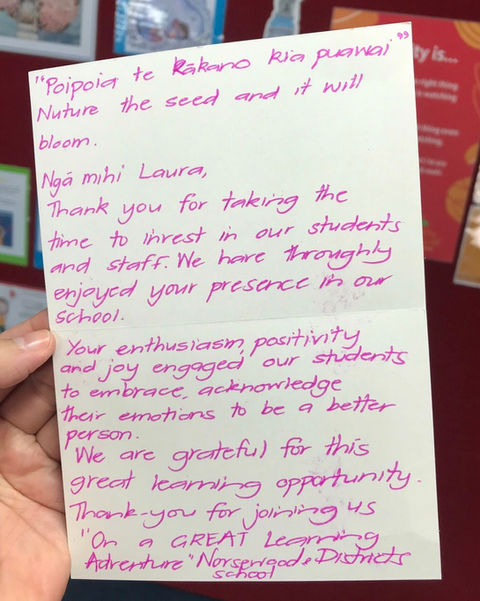 "Poipoia te Kākano kia puawai"
Nuture the seed and it will
bloom.
Ngā mihi Laura,
Thank you for taking the
time to invest in our students
and staff. We have throughly
enjoyed your presence in our
school.
Your enthusiasm, positivity
and joy engaged our students
to embrace, acknowledge
their emotions to be a better
person.
We are grateful for this
great learning opportunity.
Thank-you for joining us
"On a GREAT Learning
Adventure" Norsewood & Districts
school
ty is...
right thing
watching
thing even